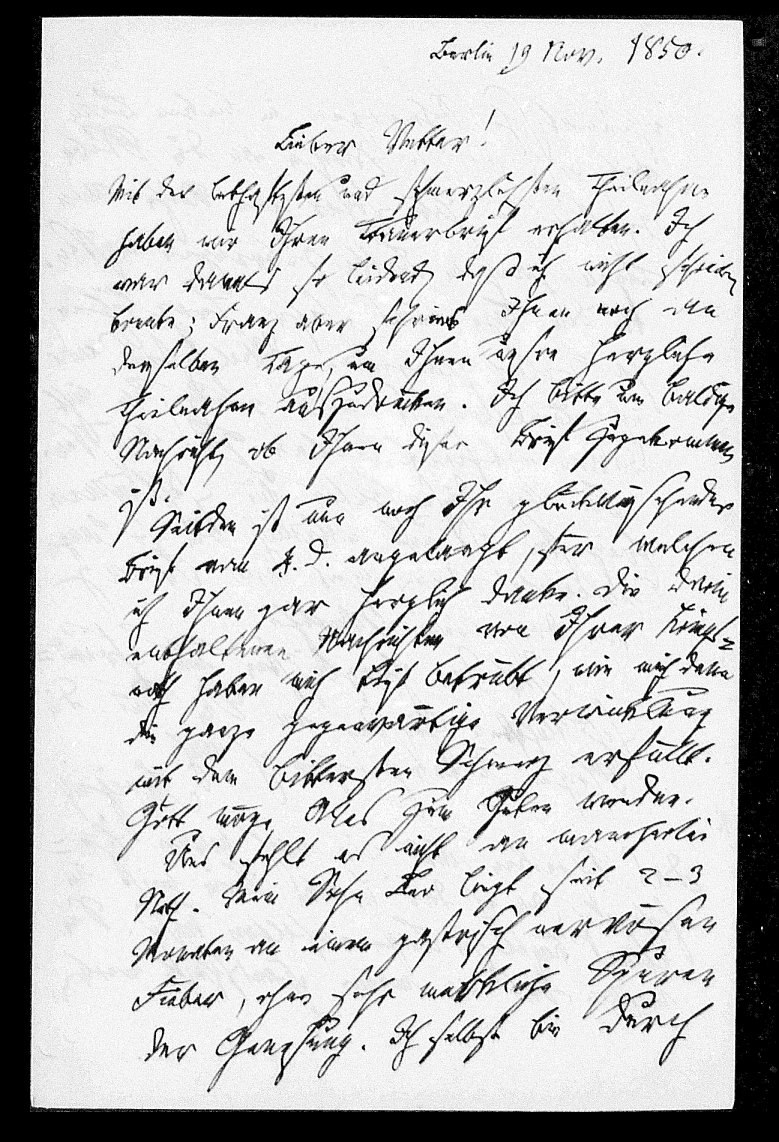 Berlin 19 Nov. 1850.
Lieber Vetter!
Mit der lebhaftesten und schmerzlichsten Theilnahme
haben wir Ihren Trauerbrief erhalten. Ich
war damals so leidend, daß ich nicht schreiben
konnte; Franz aber schrieb Ihnen noch an
demselben Tage, um Ihnen unsre herzliche
Theilnahme auszudrücken. Ich bitte um baldige
Nachricht, ob Ihnen dieser Brief zugekommen
ist.
Seitdem ist nun noch Ihr glückwünschender
Brief vom 4. d. angelangt, für welchen
ich Ihnen gar herzlich danke. Die darin
enthaltenen Nachrichten von Ihrer
haben mich tief betrübt, wie mich denn
die ganze gegenwärtige Verwicklung
mit dem bittersten Schmerz erfüllt.
Gott möge Alles zum Guten wenden.
Uns fehlt es nicht an mancherlei
Noth. Mein Sohn liegt seit 2-3
Monaten an einem gastrisch nervösen
Fieber, ohne sehr merkliche Spuren
der Genesung. Ich selbst bin durch